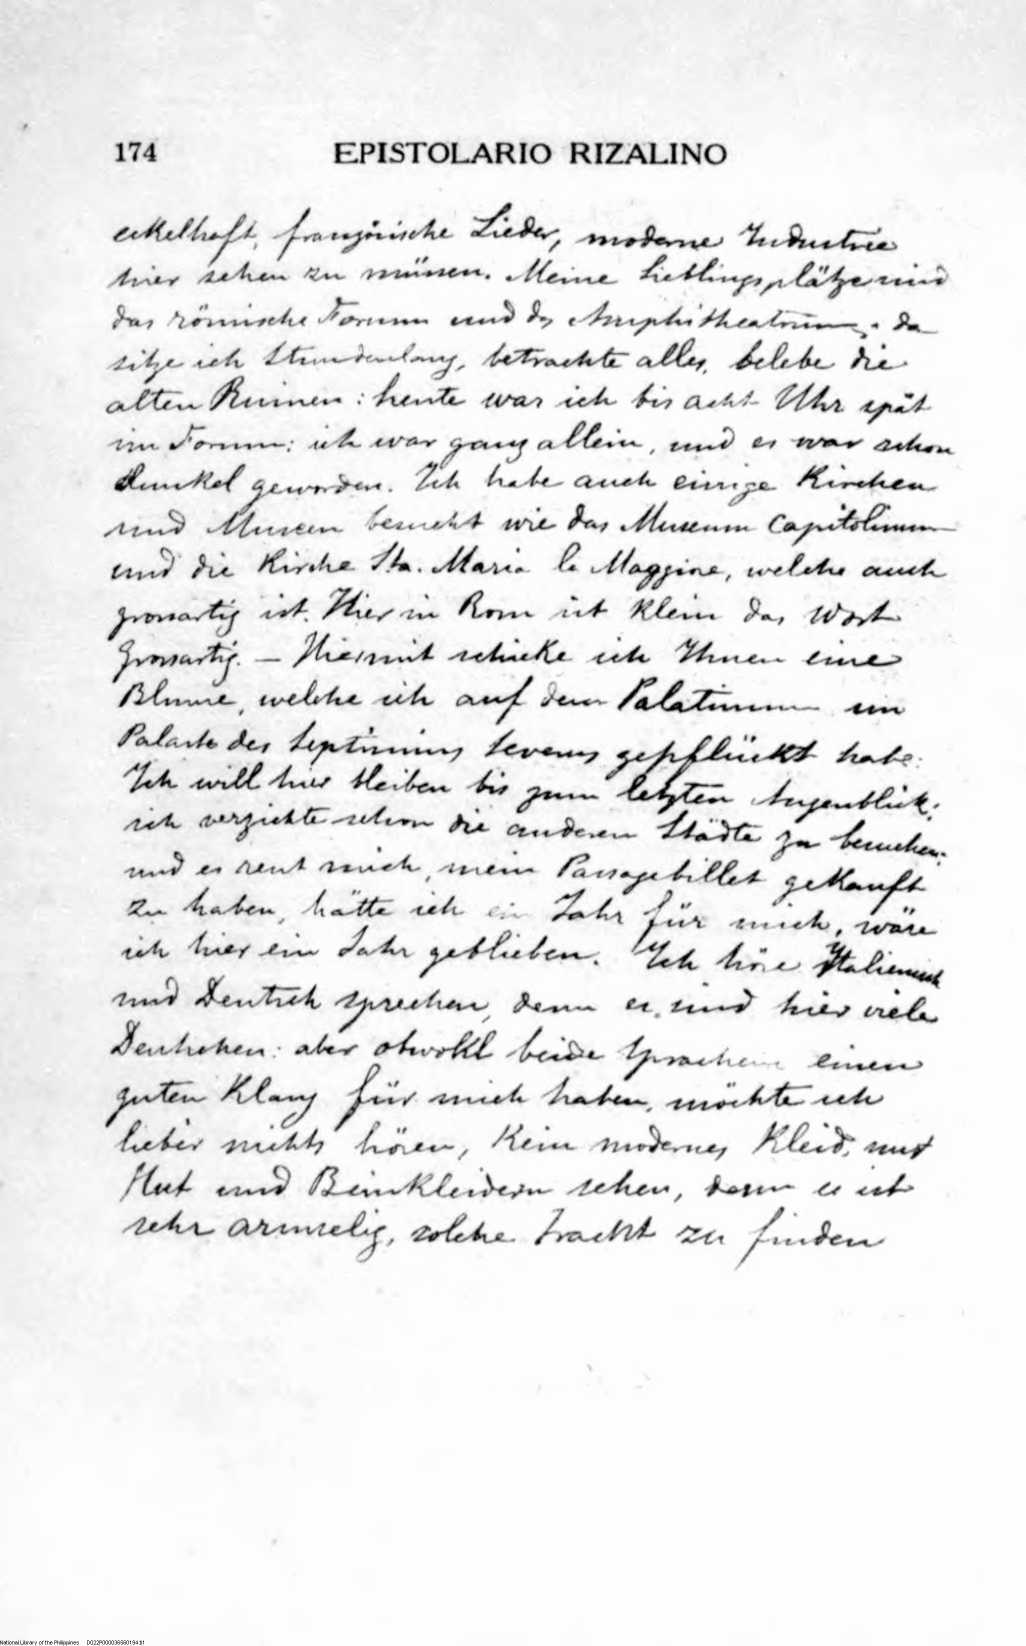 174 EPISTOLARIO RIZALINO
eckelhaft, französische Lieder, moderne Industrie
hier sehen zu müssen. Meine Lieblingsplätze sind
das römische Forum und das Amphitheatrum; da
sitze ich Stundenlang, betrachte alles, belebe die
alten Ruinen: heute war ich bis acht Uhr spät
im Forum: ich war ganz allein, und es war schon
dunkel geworden. Ich habe auch einige Kirchen
und Museen besucht wie das Museum Capitolinum
und die Kirche Sta. Maria la Maggiore, welche auch
grossartig ist. Hier in Rom ist klein das Wort
Grossartig. — Hiermit schicke ich Ihnen eine
Blume, welche ich auf dem Palatinum im
Palaste des Septimius Severus gepflückt habe.
Ich will hier bleiben bis zum letzten Augenblick;
ich verzichte schon die anderen Städte zu besuchen;
und es reut mich, mein Passagebillet gekauft
zu haben, hätte ich ein Jahr für mich, wäre
ich hier ein Jahr geblieben. Ich höre Italienisch
und Deutsch sprechen, denn es sind hier viele
Deutschen: aber obwohl beide Sprachen einen
guten Klang für mich haben, möchte ich
lieber nichts hören, kein modernes Kleid, mit
Hut und Beinkleidern sehen, denn es ist
sehr armselig, solche Tracht zu finden
National Library of the Philippines